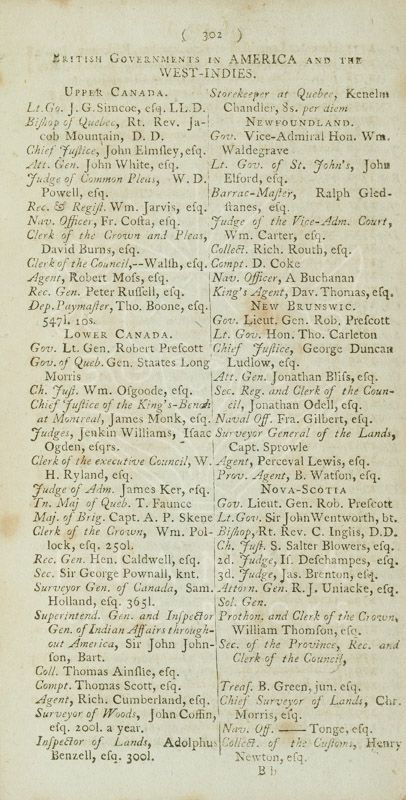 ( 302 )
BRITISH GOVERNMENTS IN AMERICA AND THE
WEST-INDIES.
UPPER CANADA.
Lt. Go. J. G. Simcoe, eſq. LL.D.
Biſhop of Quebec, Rt. Rev. Ja-
cob Mountain, D. D.
Chief Juſtice, John Elmſley, eſq.
Att. Gen. John White, eſq.
Judge of Common Pleas, W. D.
Powell, eſq.
Rec. & Regiſt. Wm. Jarvis, eſq.
Nav. Officer, Fr. Coſta, eſq.
Clerk of the Crown and Pleas,
David Burns, eſq.
Clerk of the Council,--Walſh, eſq.
Agent, Robert Moſs, eſq.
Rec. Gen. Peter Ruſſell, eſq.
Dep. Paymaſter, Tho. Boone, eſq.
547l. 10s.
LOWER CANADA.
Gov. Lt. Gen. Robert Preſcott
Gov. of Queb. Gen. Staates Long
Morris
Ch. Juſt. Wm. Oſgoode, eſq.
Chief Juſtice of the King's-Bench
at Montreal, James Monk, eſq.
Judges, Jenkin Williams, Iſaac
Ogden, eſqrs.
Clerk of the executive Council, W.
H. Ryland, eſq.
Judge of Adm. James Ker, eſq.
Tn. Maj of Queb. T. Faunce
Maj. of Brig. Capt. A. P. Skene
Clerk of the Crown, Wm. Pol-
lock, eſq. 250l.
Rec. Gen. Hen. Caldwell, eſq.
Sec. Sir George Pownall, knt.
Surveyor Gen. of Canada, Sam.
Holland, eſq. 365l.
Superintend. Gen. and Inſpector
Gen. of Indian Affairs through-
out America, Sir John John-
ſon, Bart.
Coll. Thomas Ainſlie, eſq.
Compt. Thomas Scott, eſq.
Agent, Rich. Cumberland, eſq.
Surveyor of Woods, John Coffin,
eſq. 200l. a year.
Inſpector of Lands, Adolphus
Benzell, eſq. 300l.
Storekeeper at Quebec, Kenelm
Chandler, 8s. per diem
NEWFOUNDLAND.
Gov. Vice-Admiral Hon. Wm.
Waldegrave
Lt. Gov. of St. John's, John
Elford, eſq.
Barrac-Maſter, Ralph Gled-
ſtanes, eſq.
Judge of the Vice-Adm. Court,
Wm. Carter, eſq.
Collect. Rich. Routh, eſq.
Compt. D. Coke
Nav. Officer, A Buchanan
King's Agent, Dav. Thomas, eſq.
NEW BRUNSWIC.
Gov. Lieut. Gen. Rob. Preſcott
Lt. Gov. Hon. Tho. Carleton
Chief Juſtice, George Duncan
Ludlow, eſq.
Att. Gen. Jonathan Bliſs, eſq.
Sec. Reg. and Clerk of the Coun-
cil, Jonathan Odell, eſq.
Naval Off. Fra. Gilbert, eſq.
Surveyor General of the Lands,
Capt. Sprowle
Agent, Perceval Lewis, eſq.
Prov. Agent, B. Watſon, eſq.
NOVA-SCOTIA
Gov. Lieut. Gen. Rob. Preſcott
Lt. Gov. Sir John Wentworth, bt.
Biſhop, Rt. Rev. C. Inglis, D.D.
Ch. Juſt. S. Salter Blowers, eſq.
2d. Judge, Iſ. Deſchampes, eſq.
3d. Judge, Jas. Brenton, eſq.
Attorn. Gen. R. J. Uniacke, eſq.
Sol. Gen.
Prothon. and Clerk of the Crown,
William Thomſon, eſq.
Sec. of the Province, Rec. and
Clerk of the Council,
Treaſ. B. Green, jun. eſq.
Chief Surveyor of Lands, Chr.
Morris, eſq.
Nav. Off. —— Tonge, eſq.
Collect. of the Cuſtoms, Henry
Newton, eſq.
B b